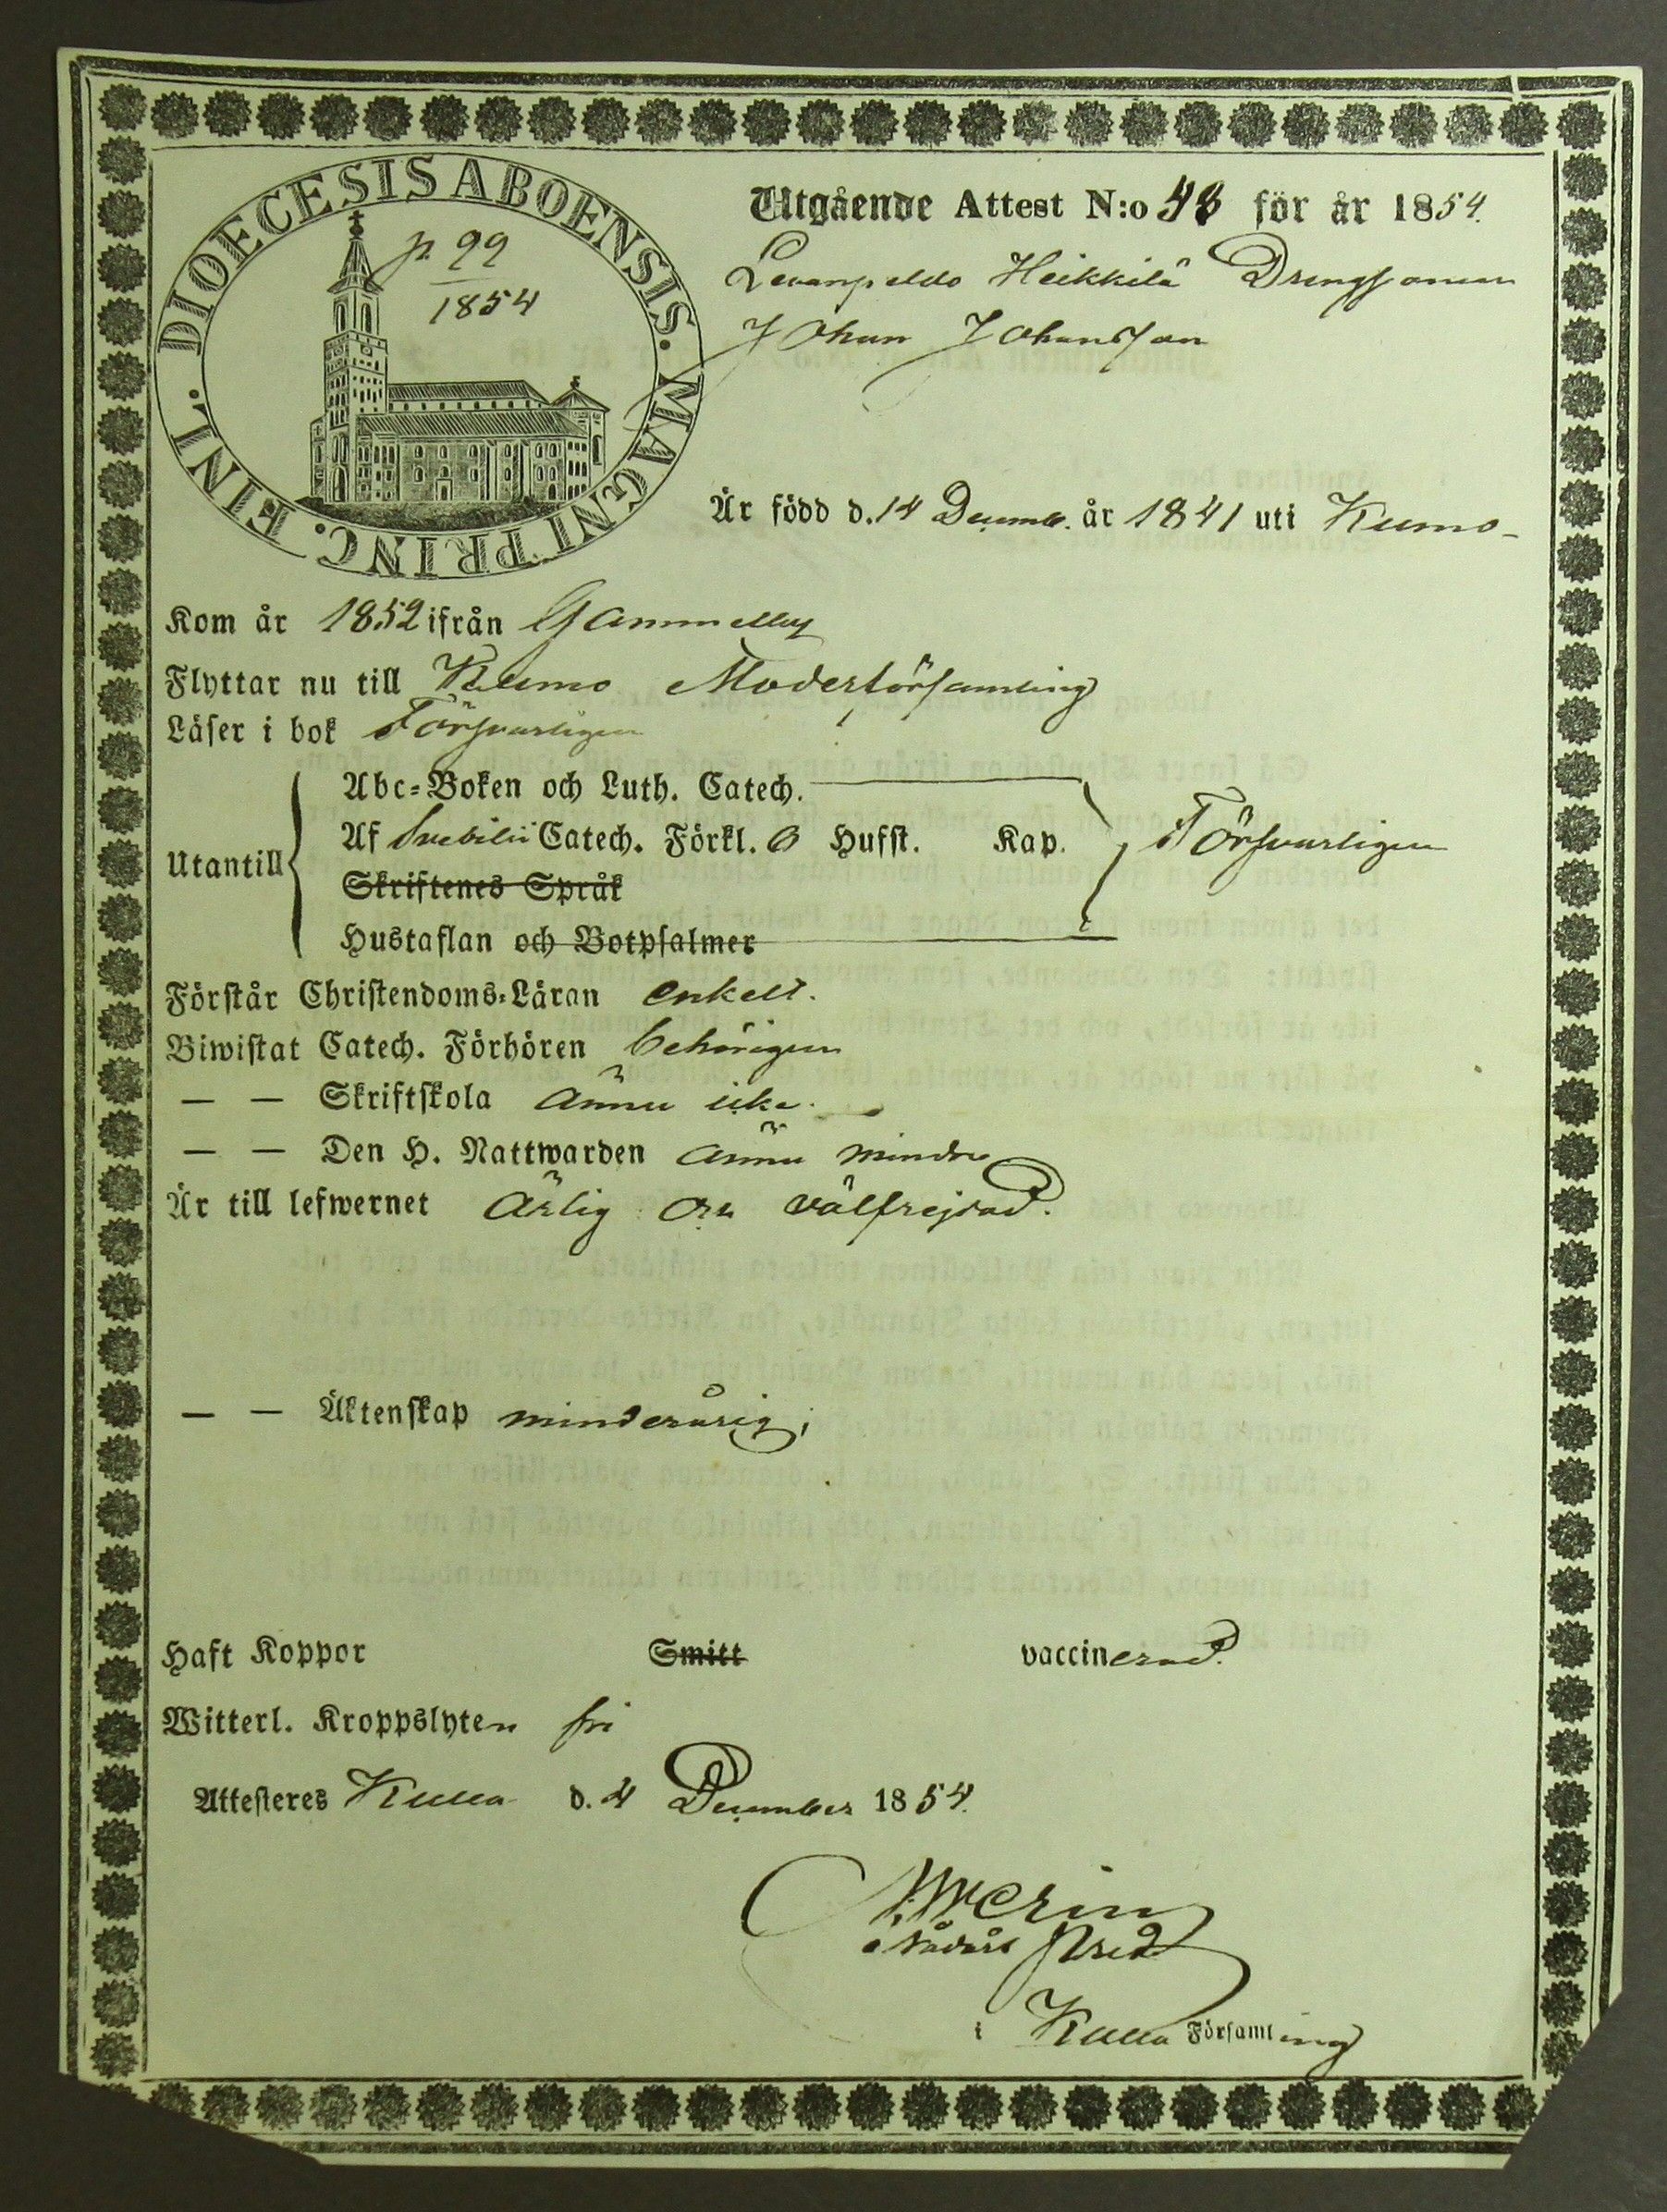 DIOECESIS ABOENSIS. MAGNI PRINC. FINL.
p. 99
1854
Utgående Attest N:o 48 för år 1854.
Levanpeldo Heikkilä Drengsonen
Johan Johansson
Är född d. 14 Decemb. år 1841 uti Kumo
Kom år 1852 ifrån Gammelby
Flyttar nu till Kumo Moderförsamling
Läser i bok Försvarligen
Abc-Boken och Luth. Catech.
Af Svebilii Catech. Förkl. 0 Hufst. Kap. Försvarligen
Utantill
Skriftenes Språk
Hustaflan och Botpsalmer
Förstår Christendoms-Läran enkelt.
Biwistat Catech. Förhören behörigen
— — Skriftskola ännu icke.
— — Den H. Nattwarden ännu mindre
Är till lefwernet ärlig och välfrejdad.
— — Äktenskap minderårig;
Haft Koppor Smitt vaccinerad.
Witterl. Kroppslyten fri
Attesteres Kulla d. 4 December 1854.
i Kulla Församling